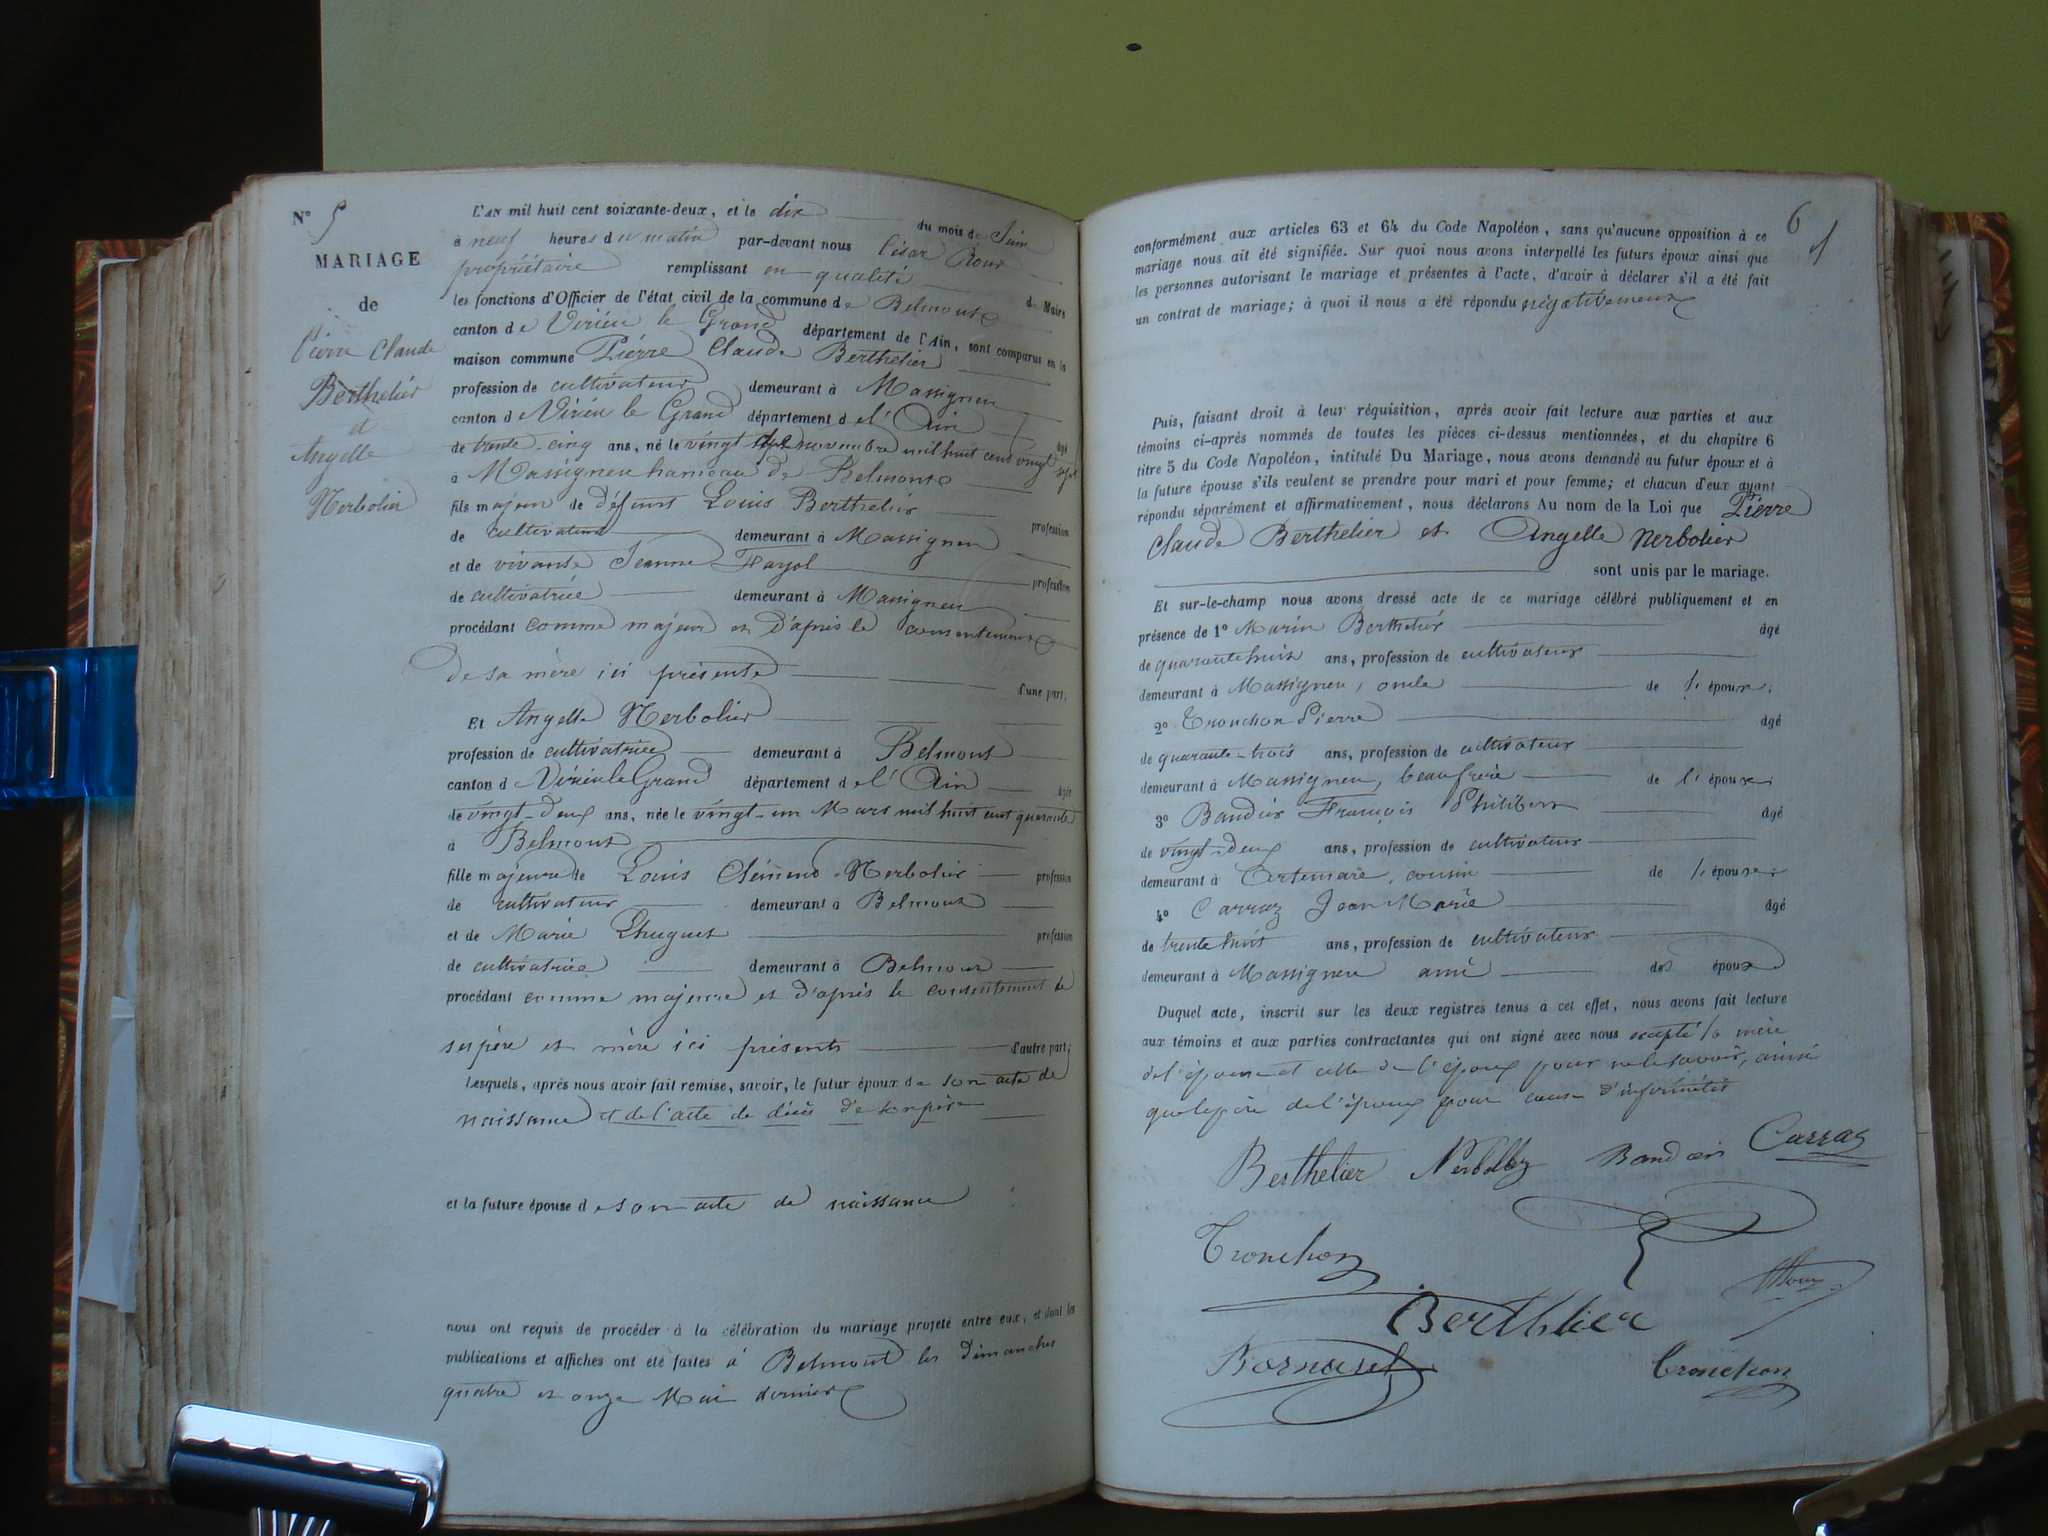 N° 5
MARIAGE
de
Pierre Claude
Berthelier
et
Angelle
Nerbolier
L'AN mil huit cent soixante-deux, et le dix du mois de Juin
à neuf heures du matin par-devant nous César Roux
propriétaire remplissant en qualité de Maire
les fonctions d'Officier de l'état civil de la commune de Belmont
canton de Virieu le Grand département de l'Ain, sont comparus en la
maison commune Pierre Claude Berthelier
profession de cultivateur demeurant à Massigneu
canton de Virieu le Grand département de l'Ain âgé
de trente-cinq ans, né le vingt novembre mil huit cent vingt sept
à Massigneu hameau de Belmont
fils majeur de défunt Louis Berthelier profession
de cultivateur demeurant à Massigneu
et de vivante Jeanne Fayol profession
de cultivatrice demeurant à Massigneu
procédant comme majeur et d'après le consentement
de sa mère ici présente d'une part;
Et Angelle Nerbolier
profession de cultivatrice demeurant à Belmont
canton de Virieu le Grand département de l'Ain âgée
de vingt-deux ans, née le vingt-un Mars mil huit cent quarante
à Belmont
fille majeure de Louis Clément Nerbolier profession
de cultivateur demeurant à Belmont
et de Marie Chuguet profession
de cultivatrice demeurant à Belmont
procédant comme majeure et d'après le consentement de
ses père et mère ici présents d'autre part;
Lesquels, après nous avoir fait remise, savoir, le futur époux de son acte de
naissance et de l'acte de décès de son père
et la future épouse de son acte de naissance
nous ont requis de procéder à la célébration du mariage projeté entre eux, et dont les
publications et affiches ont été faites à Belmont les dimanches
quatre et onze Mai dernier
6
conformément aux articles 63 et 64 du Code Napoléon, sans qu'aucune opposition à ce
mariage nous ait été signifiée. Sur quoi nous avons interpellé les futurs époux ainsi que
les personnes autorisant le mariage et présentes à l'acte, d'avoir à déclarer s'il a été fait
un contrat de mariage; à quoi il nous a été répondu négativement
Puis, faisant droit à leur réquisition, après avoir fait lecture aux parties et aux
témoins ci-après nommés de toutes les pièces ci-dessus mentionnées, et du chapitre 6
titre 5 du Code Napoléon, intitulé Du Mariage, nous avons demandé au futur époux et à
la future épouse s'ils veulent se prendre pour mari et pour femme; et chacun d'eux ayant
répondu séparément et affirmativement, nous déclarons Au nom de la Loi que Pierre
Claude Berthelier et Angelle Nerbolier
sont unis par le mariage.
Et sur-le-champ nous avons dressé acte de ce mariage célébré publiquement et en
présence de 1° Marin Berthelier âgé
de quarante huit ans, profession de cultivateur
demeurant à Massigneu, oncle de l'époux;
2° Tronchon Pierre âgé
de quarante-trois ans, profession de cultivateur
demeurant à Massigneu, beaufrère de l'époux;
3° Baudin François Philibert âgé
de vingt-deux ans, profession de cultivateur
demeurant à Artemare, cousin de l'époux;
4° Carraz Jean Marie âgé
de trente huit ans, profession de cultivateur
demeurant à Massigneu ami des époux
Duquel acte, inscrit sur les deux registres tenus à cet effet, nous avons fait lecture
aux témoins et aux parties contractantes qui ont signé avec nous excepté la mère
de l'épouse et celle de l'époux pour ne le savoir, ainsi
que le père de l'épouse pour cause d'infirmités
Berthelier Baudin Carraz
Tronchon
Roux
Berthlier
Bornarel Tronchon